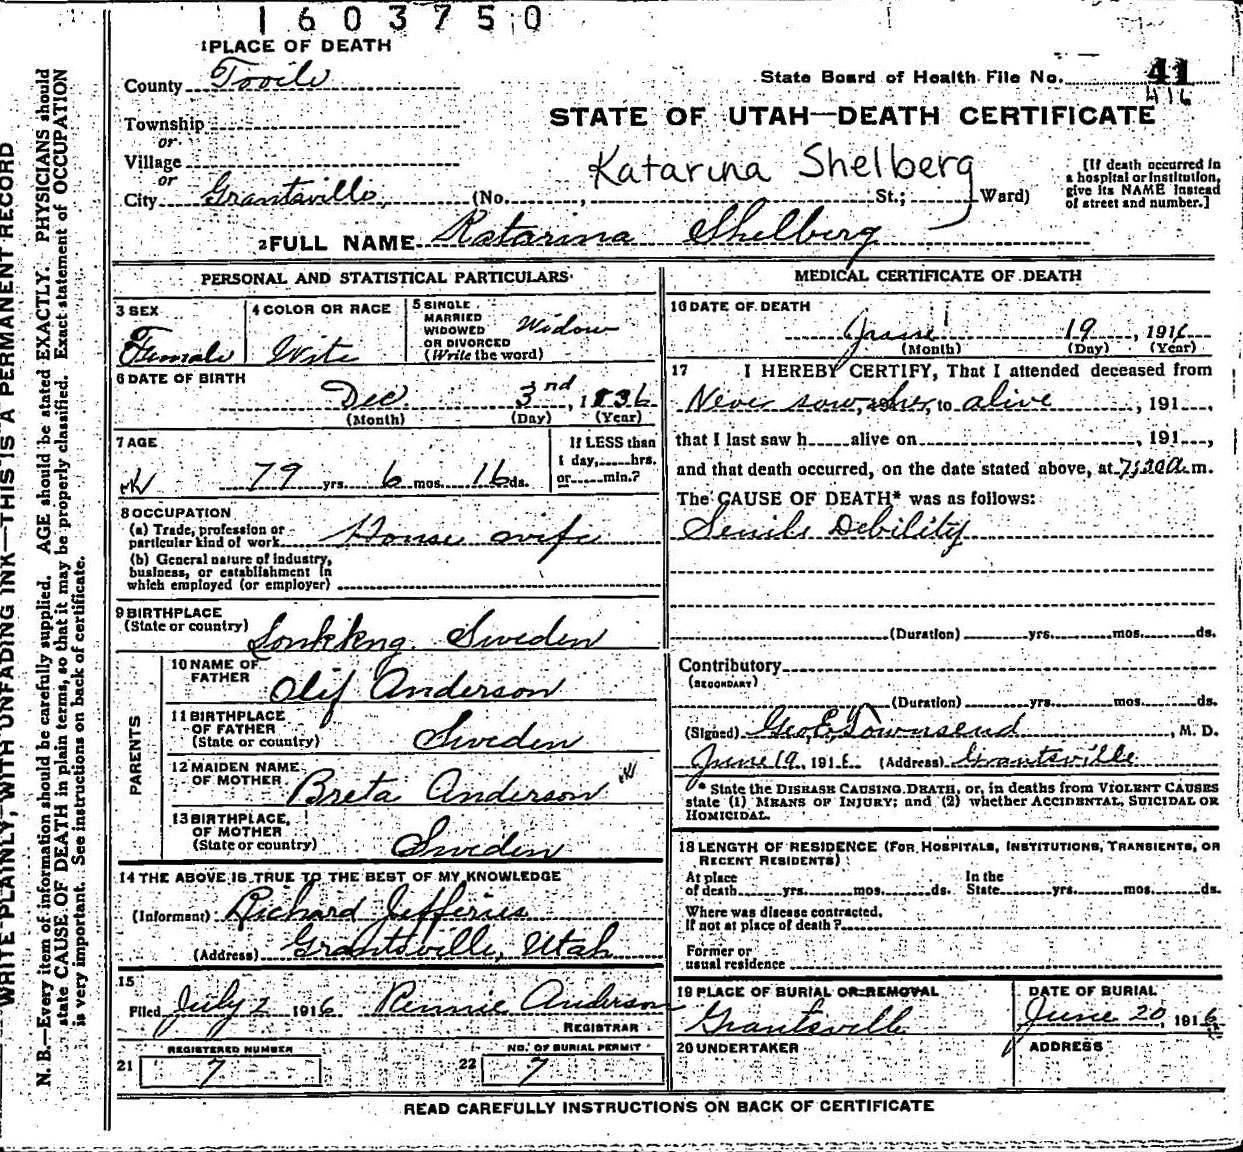 1603750
1 PLACE OF DEATH
County Tooile
State Board of Health File No. 41
416
STATE OF UTAH—DEATH CERTIFICATE
Township
or
Village
or
Katarina Shelberg
City Grantsville, (No. , St.; Ward)
[If death occurred in a hospital or institution, give its NAME instead of street and number.]
2 FULL NAME Katarina Shelberg
PERSONAL AND STATISTICAL PARTICULARS
3 SEX
Female
4 COLOR OR RACE
Wite
5 SINGLE
MARRIED
WIDOWED
OR DIVORCED
(Write the word)
Widow
6 DATE OF BIRTH
Dec. 3nd, 1836
(Month) (Day) (Year)
7 AGE
79 yrs. 6 mos. 16 ds.
If LESS than
1 day, hrs.
or min.?
8 OCCUPATION
(a) Trade, profession or
particular kind of work House wife
(b) General nature of industry,
business, or establishment in
which employed (or employer)
9 BIRTHPLACE
(State or country) Sweden
PARENTS
10 NAME OF
FATHER
Olif Anderson
11 BIRTHPLACE
OF FATHER
(State or country) Sweden
12 MAIDEN NAME
OF MOTHER
Breta Anderson
13 BIRTHPLACE
OF MOTHER
(State or country) Sweden
14 THE ABOVE IS TRUE TO THE BEST OF MY KNOWLEDGE
(Informant) Richard Jefferies
(Address) Grantsville, Utah
15
Filed July 2 1916 Pennie Anderson
REGISTRAR
REGISTERED NUMBER
21 7
NO. OF BURIAL PERMIT
22 7
MEDICAL CERTIFICATE OF DEATH
16 DATE OF DEATH
June 19, 1916
(Month) (Day) (Year)
17 I HEREBY CERTIFY, That I attended deceased from
Never sow, her, to alive, 191 ,
that I last saw h alive on , 191 ,
and that death occurred, on the date stated above, at 7:30 a. m.
The CAUSE OF DEATH* was as follows:
Senile Debility
(Duration) yrs. mos. ds.
Contributory
(SECONDARY)
(Duration) yrs. mos. ds.
(Signed) Geo, E, Townsend, M. D.
June 19, 1916 (Address) Grantsville
* State the DISEASE CAUSING DEATH, or, in deaths from VIOLENT CAUSES
state (1) MEANS OF INJURY; and (2) whether ACCIDENTAL, SUICIDAL OR
HOMICIDAL.
18 LENGTH OF RESIDENCE (FOR HOSPITALS, INSTITUTIONS, TRANSIENTS, OR
RECENT RESIDENTS)
At place
of death yrs. mos. ds.
In the
State yrs. mos. ds.
Where was disease contracted,
If not at place of death?
Former or
usual residence
19 PLACE OF BURIAL OR REMOVAL
Grantsville
DATE OF BURIAL
June 20, 1916
20 UNDERTAKER
ADDRESS
READ CAREFULLY INSTRUCTIONS ON BACK OF CERTIFICATE
WRITE PLAINLY, WITH UNFADING INK—THIS IS A PERMANENT RECORD
N. B.—Every item of information should be carefully supplied. AGE should be stated EXACTLY. PHYSICIANS should
state CAUSE OF DEATH in plain terms, so that it may be properly classified. Exact statement of OCCUPATION
is very important. See instructions on back of certificate.